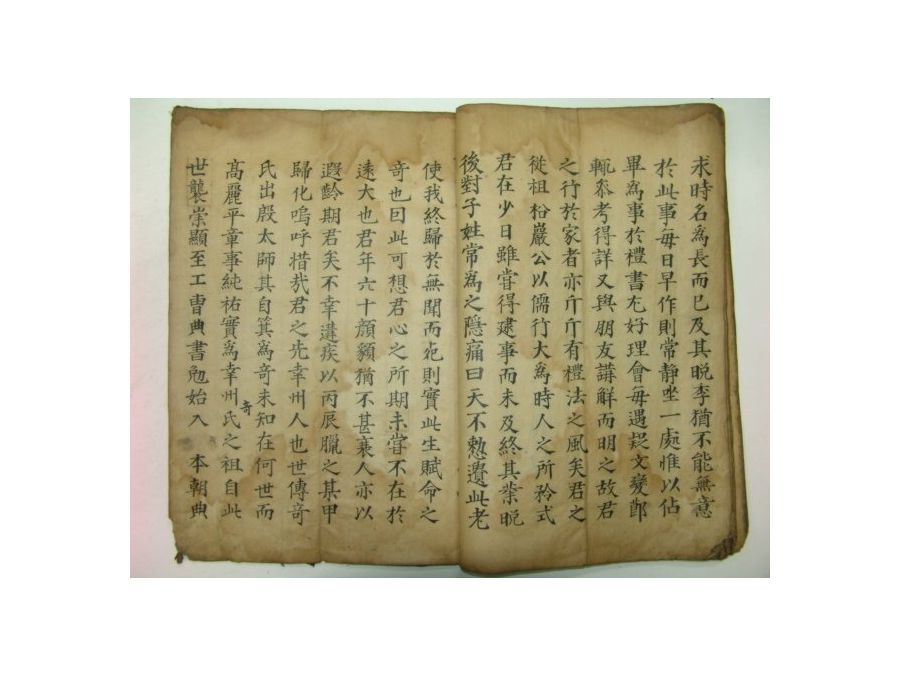 求時名爲長而已及其晩季猶不能無意
於此事每日早作則常靜坐一處惟以佔
畢爲事於禮書尤好理會每遇疑文變節
輒叅考得詳又與朋友講解而明之故君
之行於家者亦斤斤有禮法之風矣君之
從祖松巖公以儒行大爲時人之所矜式
君在少日雖嘗得建事而未及終其業晩
後對子姓常爲之隱痛曰天不憗遺此老
使我終歸於無聞而死則實此生賦命之
奇也曰此可想君心之所期未嘗不在於
遠大也君年六十顔貌猶不甚衰人亦以
遐齡期君矣不幸遘疾以丙辰臘之某甲
歸化嗚呼惜哉君之先幸州人也世傳奇
氏出殷太師其自箕爲奇未知在何世而
高麗平章事純祐實爲幸州奇氏之祖自此
世襲崇顯至工曹典書勉始入 本朝典